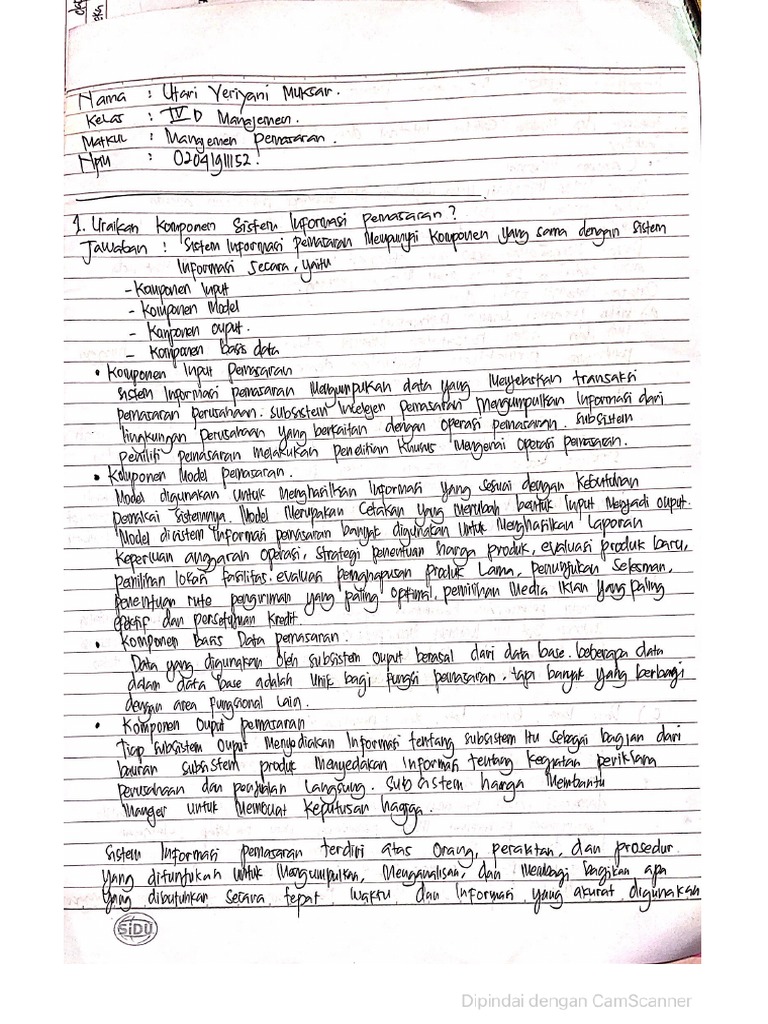 Nama : Utari Yeriyani Muksar.
Kelas : IV D Manajemen.
Matkul : Manajemen Pemasaran.
Npm : 0204191152.
1. Uraikan Komponen Sistem Informasi pemasaran ?
Jawaban : Sistem Informasi pemasaran Mempunyai Komponen yang sama dengan sistem
Informasi secara, yaitu
- Komponen Input
- Komponen Model
- Komponen ouput.
- Komponen basis data
• Komponen Input pemasaran
Sistem Informasi pemasaran Mengumpulkan data yang Menjelaskan transaksi
pemasaran perusahaan. Subsistem Intelejen pemasaran mengumpulkan Informasi dari
lingkungan perusahaan yang berkaitan dengan operasi pemasaran. Subsistem
Peniliti pemasaran Melakukan penelitian Khusus Mengenai operasi pemasaran.
• Komponen Model pemasaran.
Model digunakan untuk menghasilkan Informasi yang sesuai dengan Kebutuhan
pemakai sistemnya. Model Merupakan Cetakan yang Merubah bentuk Input Menjadi ouput.
Model disistem Informasi pemasaran banyak digunakan untuk Menghasilkan laporan
Keperluan anggaran operasi, strategi penentuan harga produk, evaluasi produk baru,
pemilihan lokasi fasilitas. evaluasi penghapusan Produk Lama, penunjukan Selesman,
penentuan rute pengiriman yang paling optimal, pemilihan Media Iklan yang paling
efektif dan persetujuan Kredit.
• Komponen Basis Data pemasaran.
Data yang digunakan oleh subsistem Ouput berasal dari data base. beberapa data
dalam data base adalah unik bagi fungsi pemasaran, tapi banyak yang berbagi
dengan area Fungsional Lain.
• Komponen Ouput pemasaran
Tiap subsistem Ouput Menyediakan Informasi tentang subsistem Itu sebagai bagian dari
bauran subsistem produk Menyedakan Informasi tentang Kegiatan periklana
perusahaan dan penjualan Langsung. Subsistem harga Membantu
Manger untuk Membuat Keputusan hagga.
Sistem Informasi pemasaran terdiri atas Orang, peraktan, dan prosedur
yang ditunjukan untuk Mengumpulkan, Menganalisan, dan Membagi bagikan apa
yang dibutuhkan Secara tepat waktu dan Informasi yang akurat digunakan
SIDU
Dipindai dengan CamScanner